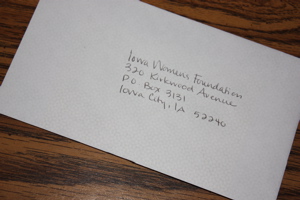 Iowa Womens Foundation
320 Kirkwood Avenue
PO Box 3131
Iowa City, IA 52240